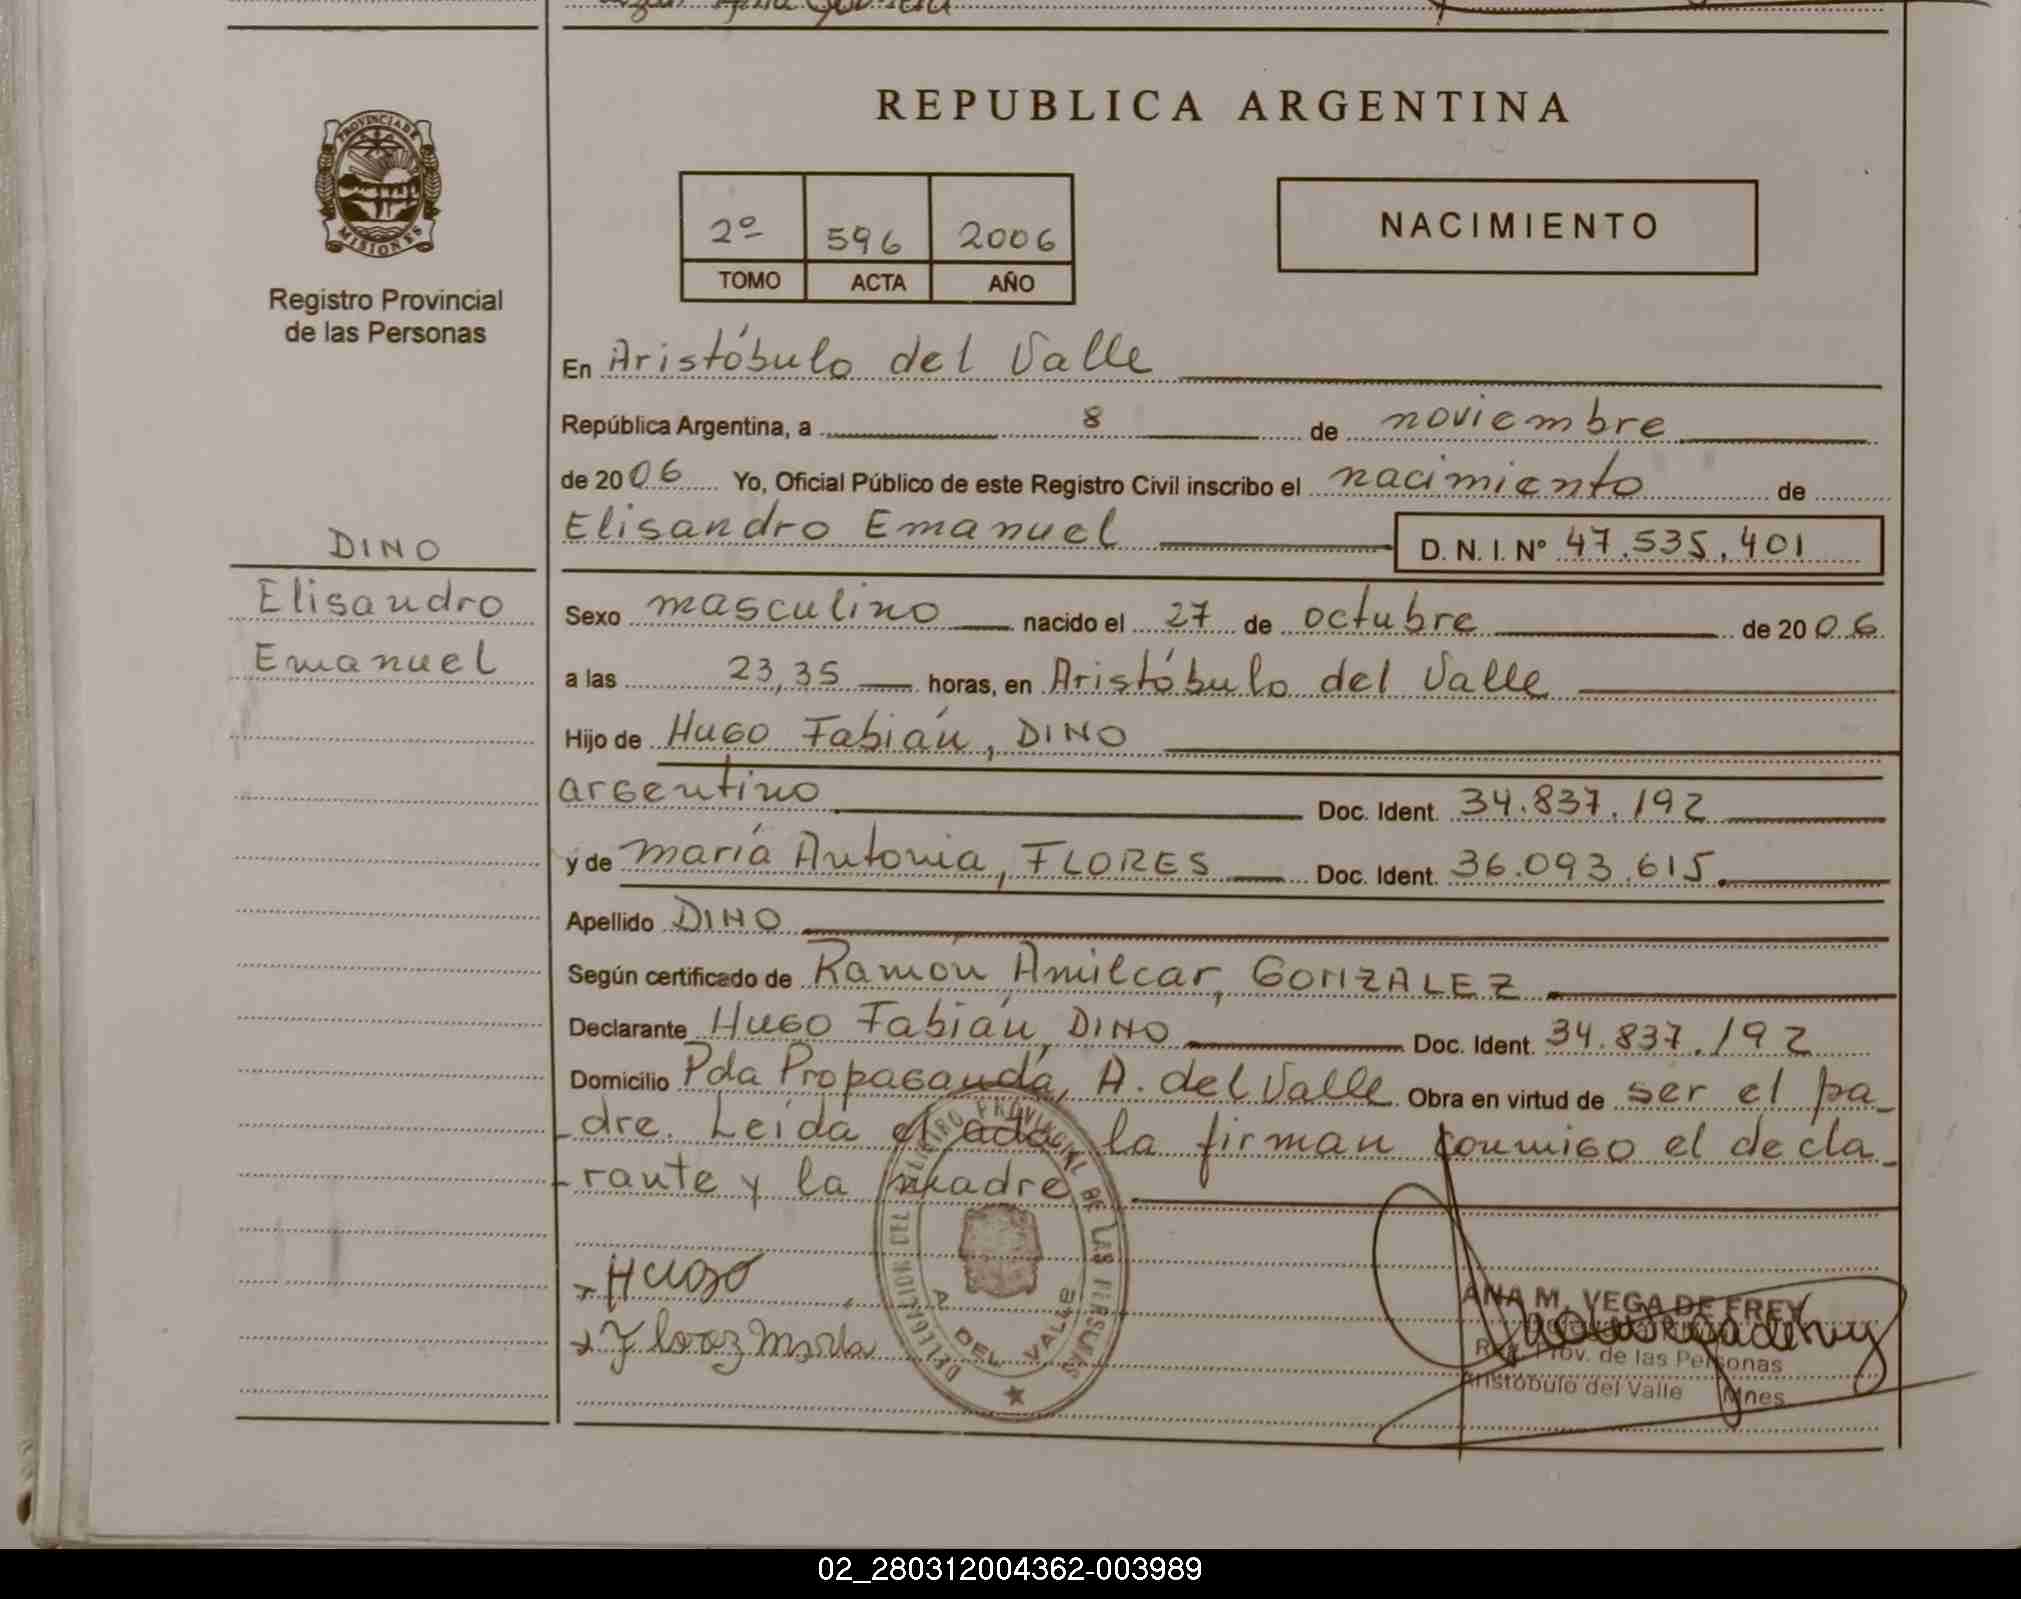 PROVINCIA DE
MISIONES
Registro Provincial
de las Personas
DINO
Elisandro
Emanuel
REPUBLICA ARGENTINA
2º 596 2006
TOMO ACTA AÑO
NACIMIENTO
En Aristóbulo del Valle
República Argentina, a 8 de noviembre
de 2006 Yo, Oficial Público de este Registro Civil inscribo el nacimiento de
Elisandro Emanuel D. N. I. Nº 47.535.401
Sexo masculino nacido el 27 de octubre de 2006
a las 23,35 horas, en Aristóbulo del Valle
Hijo de Hugo Fabián, DINO
argentino Doc. Ident. 34.837.192
y de maría Antonia, FLORES Doc. Ident. 36.093.615.
Apellido DINO
Según certificado de Ramón Amilcar, GONZALEZ
Declarante Hugo Fabián, DINO Doc. Ident. 34.837.192
Domicilio Pda Propaganda, A. del Valle Obra en virtud de ser el pa-
dre. Leída el acta la firman conmigo el decla-
rante y la madre
DELEGACION DEL REGISTRO PROVINCIAL DE LAS PERSONAS
A. DEL VALLE
Hugo
ANA M. VEGA DE FREY
Reg. Prov. de las Personas
Aristóbulo del Valle Mnes
02_280312004362-003989